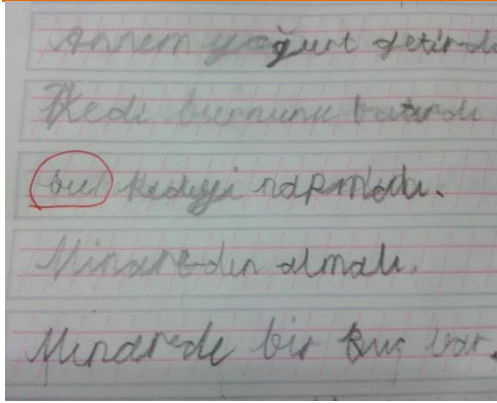 Annem yoğurt getirdi
Kedi burnunu batırdı
bu kediyi napmalı.
Minareden atmalı.
Minarede bir kuş var.